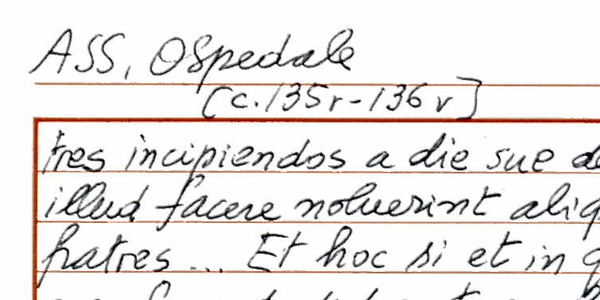 ASS, Ospedale
[c.135r-136v]
tres incipiendos a die sue
illud facere noluerint aliq
fratres... Et hoc si et in